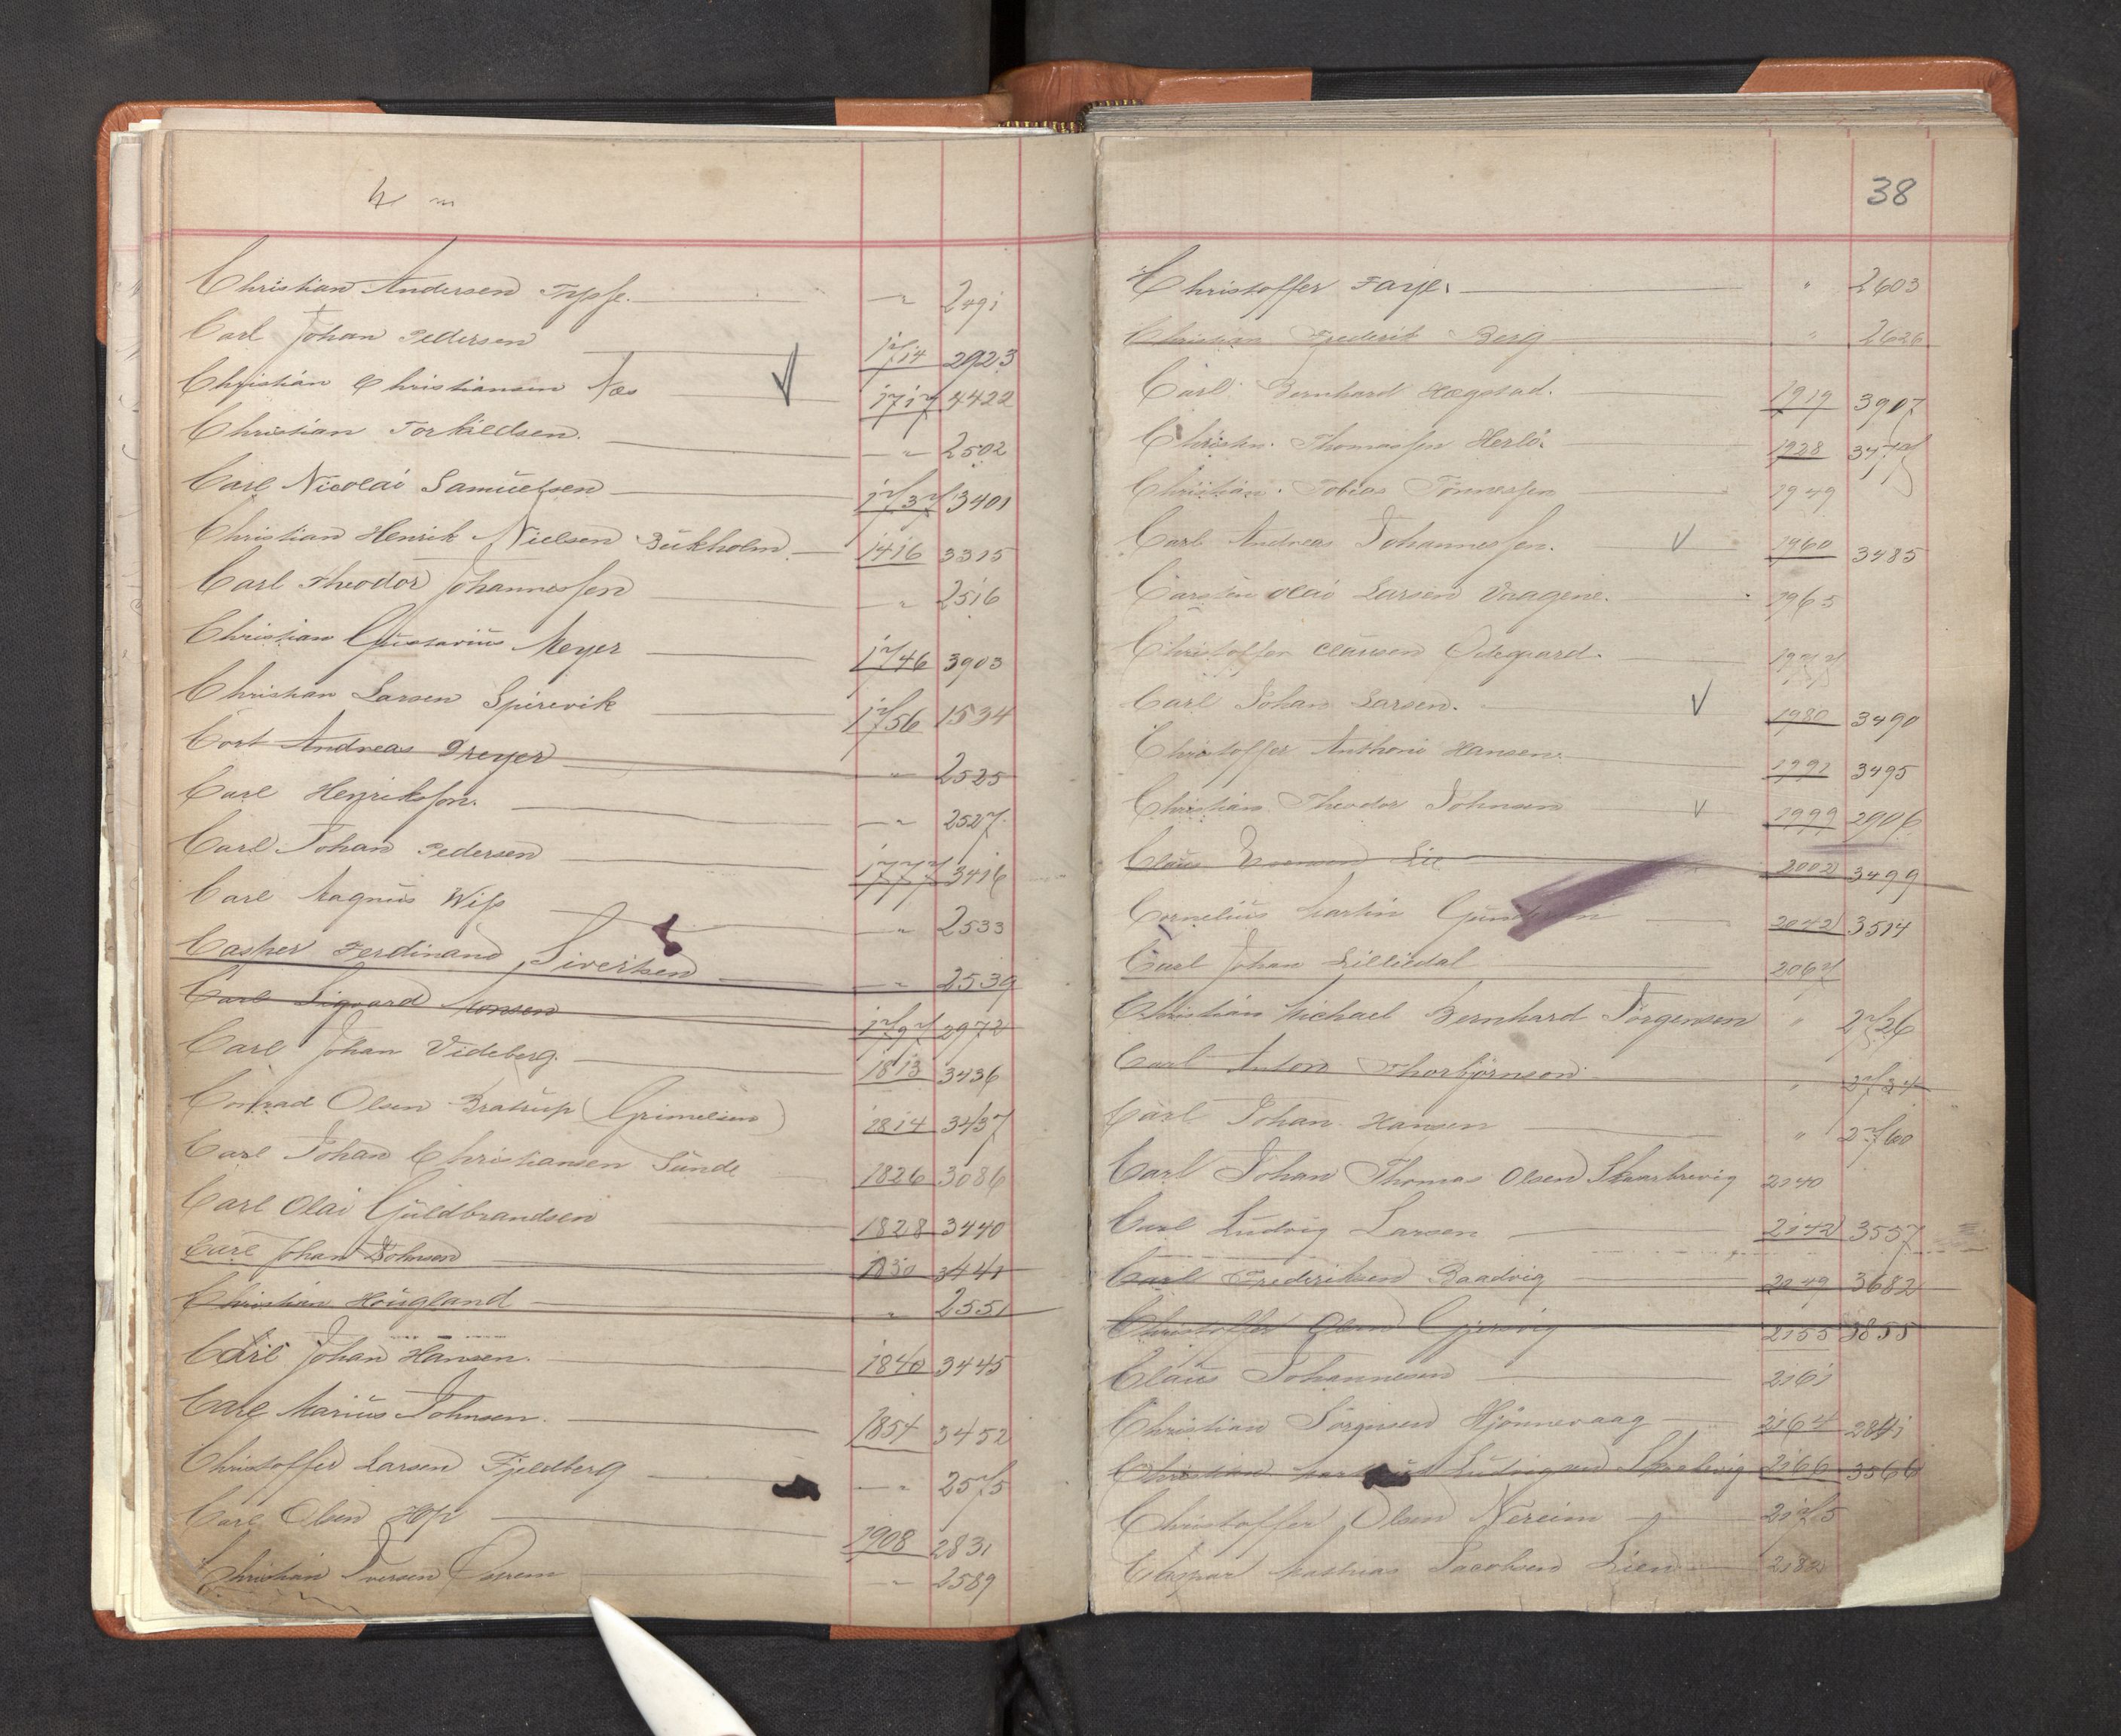 Christian Andersen — " 2491
Carl Johan Pedersen 1714 2923
Christian Christiansen Næs 1717 4422
Christian Torkildsen. — " 2502
Carl Nicolai Samuelsen 1737 3401
Christian Henrik Nielsen Bukholm 1416 3315
Carl Theodor Johannessen — " 2516
Christian Gustavius Meyer 1746 3903
Christian Larsen Spirevik 1756 1534
Cort Andreas Dreyer — " 2525
Carl Henriksen. — " 2527
Carl Johan Pedersen 1777 3416
Carl Magnus Wiss — " 2533
Casper Ferdinand Sivertsen — " 2539
Carl Sigvard Monsen 1797 2972
Carl Johan Videberg. 1813 3436
Conrad Olsen Bratrup (Grimelien) 1814 3437
Carl Johan Christiansen Sunde 1826 3086
Carl Olai Guldbrandsen 1828 3440
Carl Johan Johnsen 1830 3441
Christian Hougland " 2551
Carl Johan Hansen. 1840 3445
Carl Marius Johnsen. 1854 3452
Christoffer Larsen Fjeldberg — " 2575
Carl Olsen Hop 1908 2831
Christian Iversen — " 2589
38
Christoffer Faye. " 2603
Christian Frederik Berg " 2626
Carl Bernhard Hægstad. 1919 3907
Christn. Thomassen Herlö. 1928 3477
Christian Tobias Tönnessen 1949
Carl Andreas Johannessen. 1960 3485
Carsten Olai Larsen Vaagene. 1965
Christoffer Clausen Ödegaard. 1977
Carl Johan Larsen. 1980 3490
Christoffer Anthoni Hansen. 1991 3495
Christian Theodor Johnsen 1999 2906
Claus Lie 2002 3499
Cornelius Martin 2042 3514
Carl Johan Lilliedal 2067
Christian Michael Bernhard Jörgensen " 2726
Carl Anton Thorbjörnsen " 2734
Carl Johan Hansen " 2760
Carl Johan Thomas Olsen Skaarbrevig 2140
Carl Ludvig Larsen 2142 3557
Carl Frederiksen Baadvig 2149 3682
Christoffer Olsen Gjersvig 2155 3855
Claus Johannesen 2161
Christian Jörgensen Hjönnevaag 2164 2841
Christian Ludvigsen 2166 3566
Christoffer Olsen Nereim 2175
Caspar Mathias Jacobsen Lien 2182